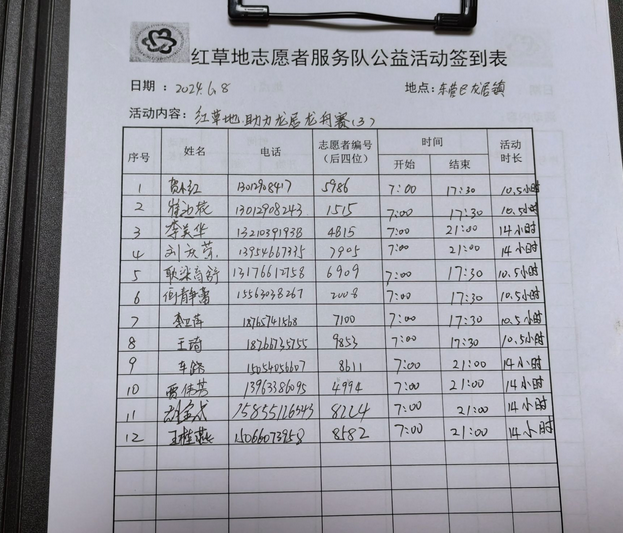 红草地志愿者服务队公益活动签到表
日期：2024.6.8 地点：东营区龙居镇
活动内容：红草地助力龙居龙舟赛(3)
序号 姓名 电话 志愿者编号（后四位） 时间 开始 结束 活动时长
1 5986 7:00 17:30 10.5小时
2 13012908243 1515 7:00 17:30 10.5小时
3 李美华 13210391938 4815 7:00 21:00 14小时
4 13954667335 7905 7:00 21:00 14小时
5 13176612758 6909 7:00 17:30 10.5小时
6 15563038267 2008 7:00 17:30 10.5小时
7 18765741568 7100 7:00 17:30 10.5小时
8 王琦 18761735755 9853 7:00 17:30 10.5小时
9 15054056607 8611 7:00 21:00 14小时
10 13963386095 4994 7:00 21:00 14小时
11 7:00 21:00 14小时
12 王桂燕 15066073958 8582 7:00 21:00 14小时